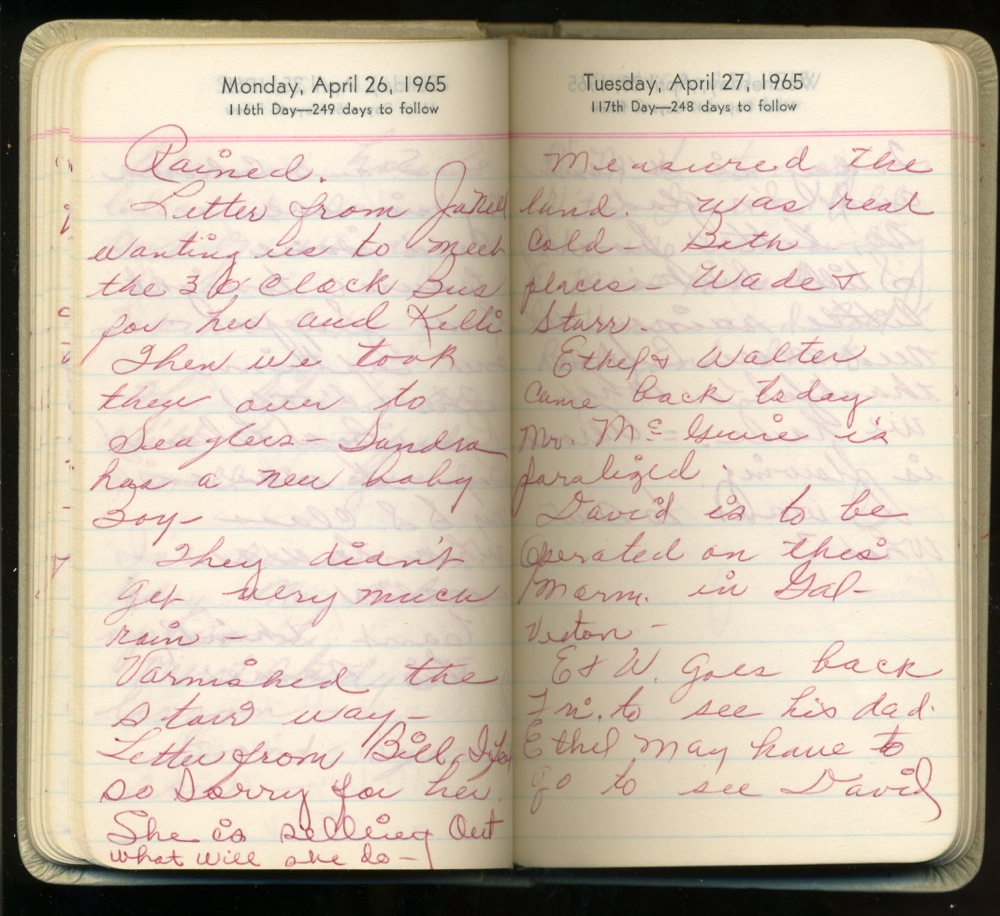 Monday, April 26, 1965
116th Day—249 days to follow
Rained.
Letter from Janell
wanting us to meet
the 3 o'Clock Bus
for her and Kelli
Then we took
them over to
Seaglers - Sandra
has a new baby
Boy-
They didn't
get very much
rain -
Varnished the
stair way-
Letter from Bill,
so Sorry for her.
She is selling Out
what will she do-
Tuesday, April 27, 1965
117th Day—248 days to follow
Measured the
land. was real
Cold - Both
places - Wade &
Starr.
Ethel & Walter
Came back today
Mr. Mc Guire is
paralized.
David is to be
Operated on this
Morn. in Gal-
veston -
E & W. goes back
Fri. to see his dad.
Ethel may have to
go to see David